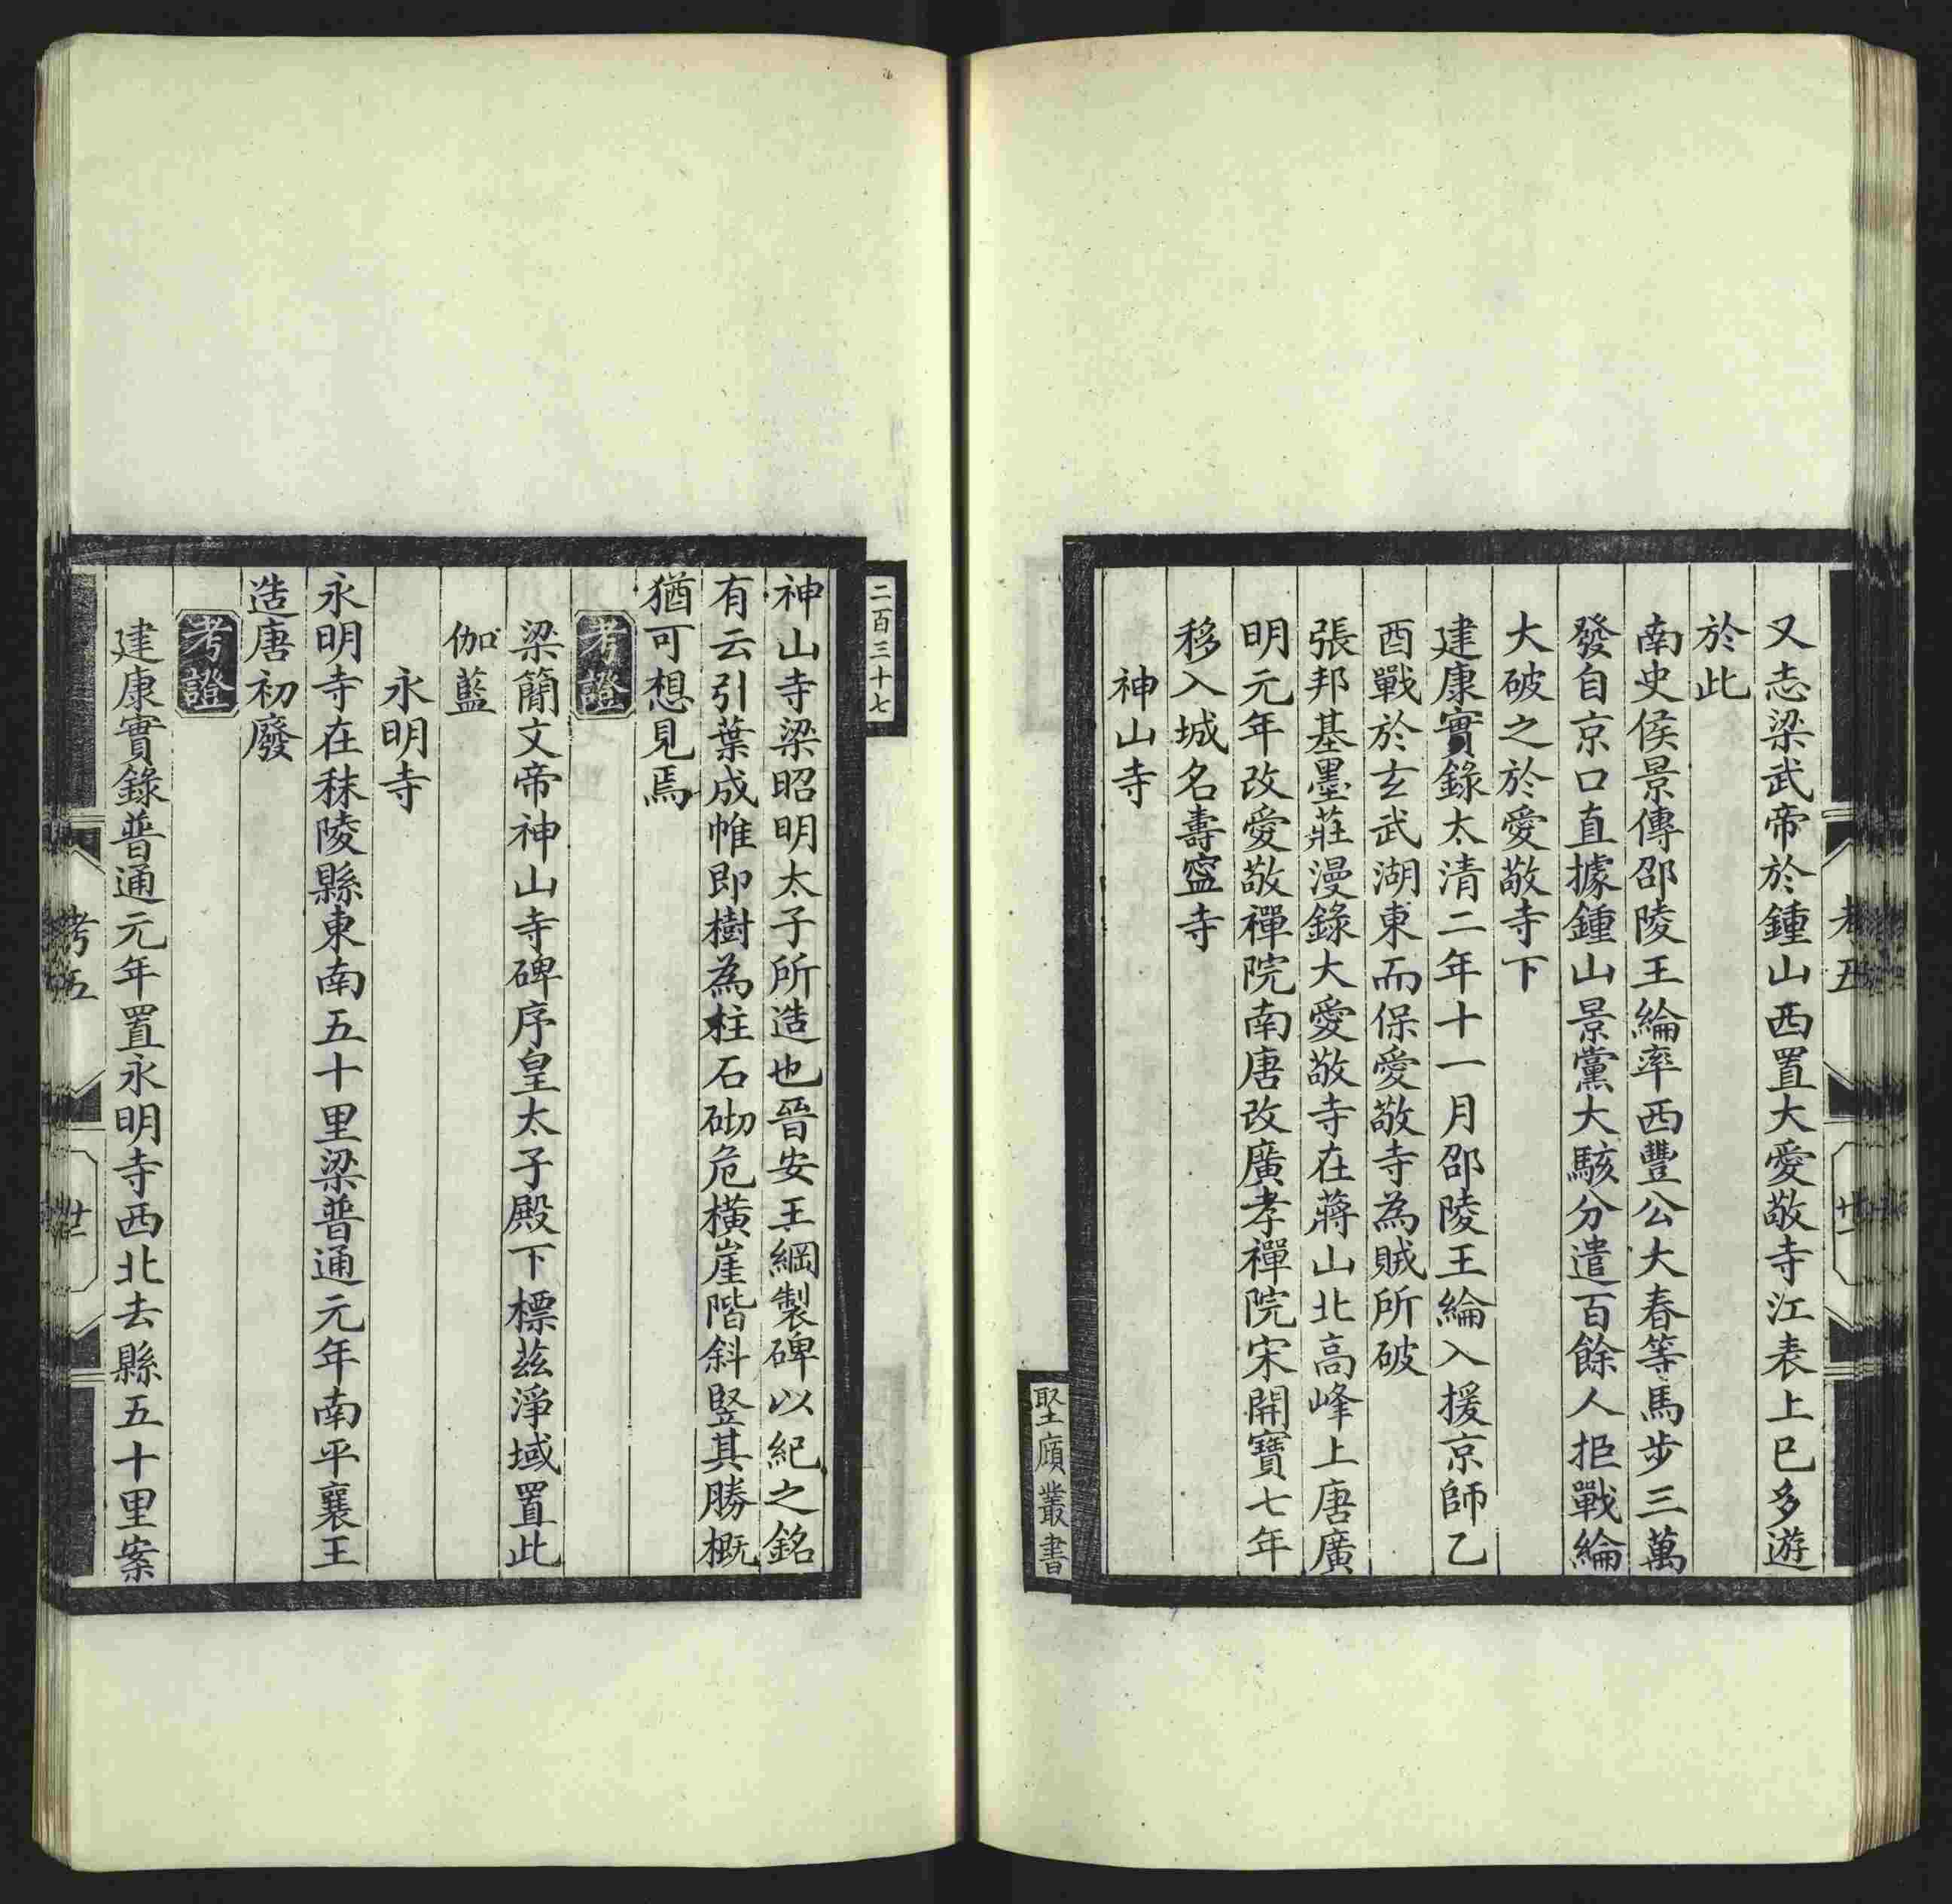 又志梁武帝於鍾山西置大愛敬寺江表上巳多遊
於此
南史侯景傳邵陵王綸率西豐公大春等馬步三萬
發自京口直據鍾山景黨大駭分遣百餘人拒戰綸
大破之於愛敬寺下
建康實錄太清二年十一月邵陵王綸入援京師乙
酉戰於玄武湖東而保愛敬寺為賊所破
張邦基墨莊漫錄大愛敬寺在蔣山北高峰上唐廣
明元年改愛敬禪院南唐改廣孝禪院宋開寶七年
移入城名壽寍寺
神山寺
堅廎叢書
二百三十七
神山寺梁昭明太子所造也晉安王綱製碑以紀之銘
有云引葉成帷即樹為柱石砌危橫崖階斜竪其勝概
猶可想見焉
考證
梁簡文帝神山寺碑序皇太子殿下標茲淨域置此
伽藍
永明寺
永明寺在秣陵縣東南五十里梁普通元年南平襄王
造唐初廢
考證
建康實錄普通元年置永明寺西北去縣五十里案
考五